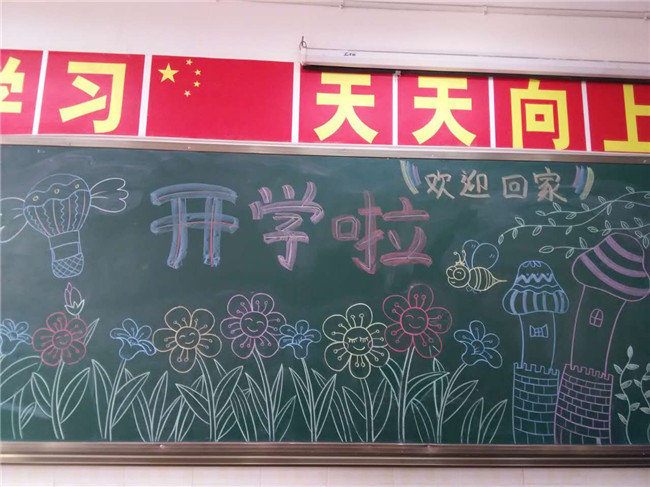 学习 天天向上
欢迎回家
开学啦